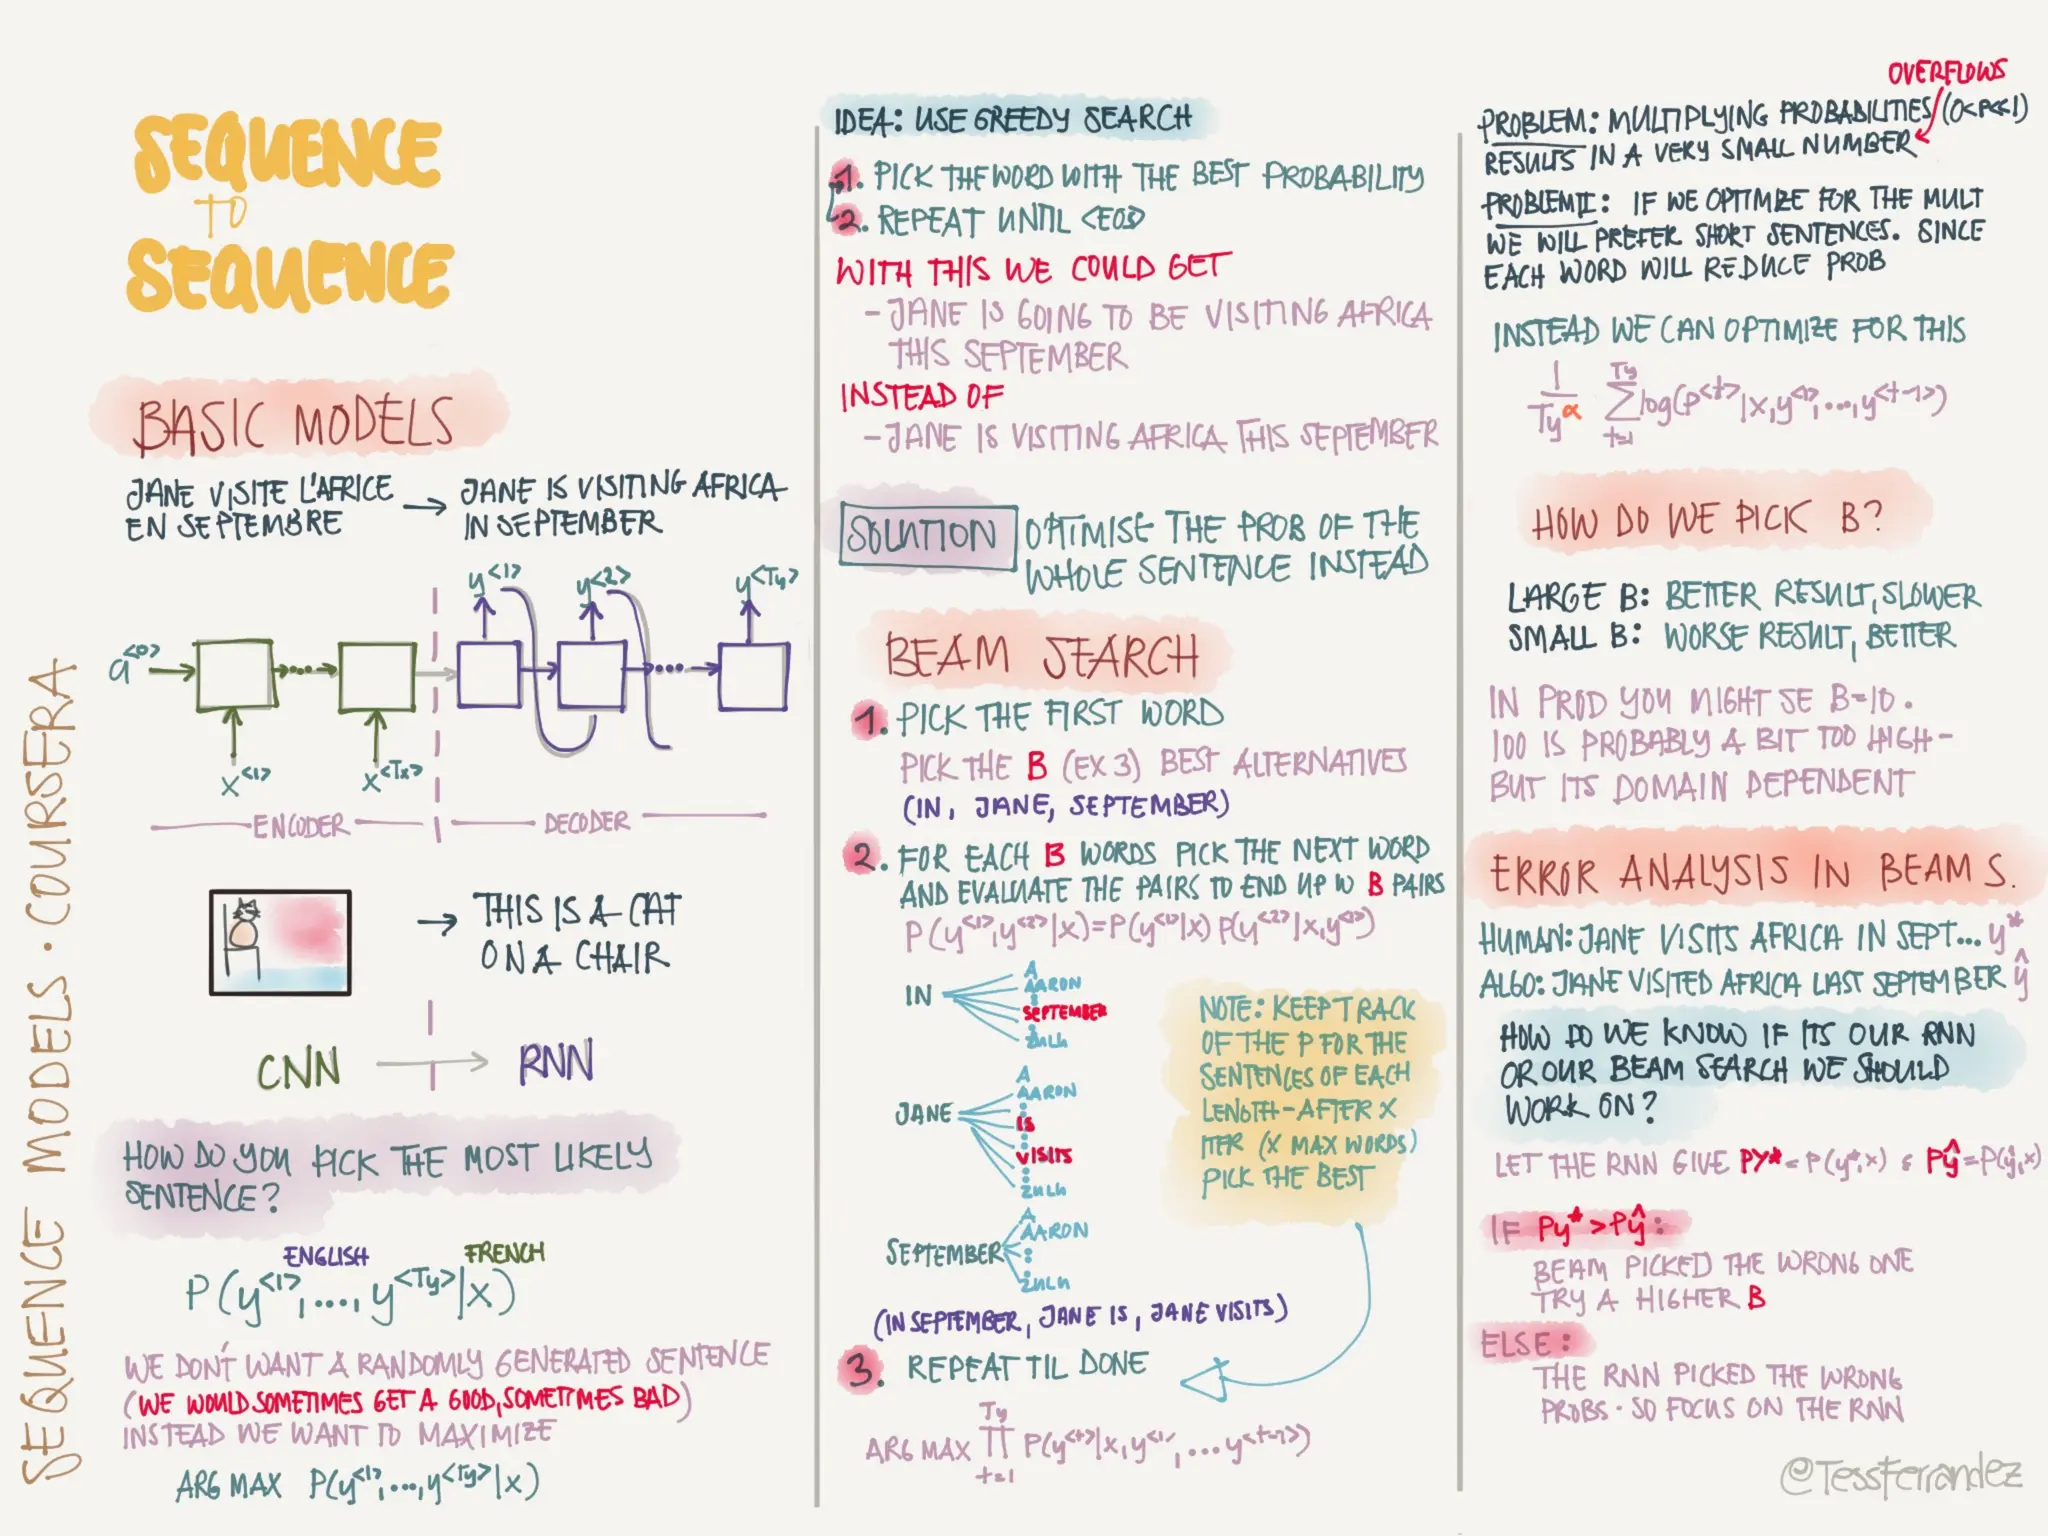 SEQUENCE MODELS · COURSERA
SEQUENCE
TO
SEQUENCE
BASIC MODELS
JANE VISITE L'AFRICE
EN SEPTEMBRE
→ JANE IS VISITING AFRICA
IN SEPTEMBER
y<1> y<2> y<Ty>
a<0>
x<1> x<Tx>
ENCODER DECODER
→ THIS IS A CAT
ON A CHAIR
CNN → RNN
HOW DO YOU PICK THE MOST LIKELY
SENTENCE?
ENGLISH FRENCH
P(y<1>, ..., y<Ty>|x)
WE DON'T WANT A RANDOMLY GENERATED SENTENCE
(WE WOULD SOMETIMES GET A GOOD, SOMETIMES BAD)
INSTEAD WE WANT TO MAXIMIZE
ARG MAX P(y<1>, ..., y<Ty>|x)
IDEA: USE GREEDY SEARCH
1. PICK THE WORD WITH THE BEST PROBABILITY
2. REPEAT UNTIL <EOS>
WITH THIS WE COULD GET
- JANE IS GOING TO BE VISITING AFRICA
THIS SEPTEMBER
INSTEAD OF
- JANE IS VISITING AFRICA THIS SEPTEMBER
SOLUTION OPTIMISE THE PROB OF THE
WHOLE SENTENCE INSTEAD
BEAM SEARCH
1. PICK THE FIRST WORD
PICK THE B (EX 3) BEST ALTERNATIVES
(IN, JANE, SEPTEMBER)
2. FOR EACH B WORDS PICK THE NEXT WORD
AND EVALUATE THE PAIRS TO END UP W B PAIRS
P(y<1>, y<2>|x)=P(y<1>|x) P(y<2>|x,y<1>)
IN
A
AARON
SEPTEMBER
ZULU
JANE
A
AARON
IS
VISITS
ZULU
SEPTEMBER
A
AARON
ZULU
NOTE: KEEP TRACK
OF THE P FOR THE
SENTENCES OF EACH
LENGTH - AFTER X
ITER (X MAX WORDS)
PICK THE BEST
(IN SEPTEMBER, JANE IS, JANE VISITS)
3. REPEAT TIL DONE
ARG MAX ∏ Ty t=1 P(y<t>|x, y<1>, ... y<t-1>)
OVERFLOWS
PROBLEM: MULTIPLYING PROBABILITIES (0<P<<1)
RESULTS IN A VERY SMALL NUMBER
PROBLEM II: IF WE OPTIMIZE FOR THE MULT
WE WILL PREFER SHORT SENTENCES. SINCE
EACH WORD WILL REDUCE PROB
INSTEAD WE CAN OPTIMIZE FOR THIS
1/Ty^α ∑ Ty t=1 log(P<t>|x, y<1>, ..., y<t-1>)
HOW DO WE PICK B?
LARGE B: BETTER RESULT, SLOWER
SMALL B: WORSE RESULT, BETTER
IN PROD YOU MIGHT SE B=10.
100 IS PROBABLY A BIT TOO HIGH -
BUT ITS DOMAIN DEPENDENT
ERROR ANALYSIS IN BEAM S.
HUMAN: JANE VISITS AFRICA IN SEPT... y*
ALGO: JANE VISITED AFRICA LAST SEPTEMBER ŷ
HOW DO WE KNOW IF ITS OUR RNN
OR OUR BEAM SEARCH WE SHOULD
WORK ON?
LET THE RNN GIVE PY* = P(y*, x) & Pŷ = P(ŷ, x)
IF Py* > Pŷ:
BEAM PICKED THE WRONG ONE
TRY A HIGHER B
ELSE:
THE RNN PICKED THE WRONG
PROBS. SO FOCUS ON THE RNN
@TessFerrandez